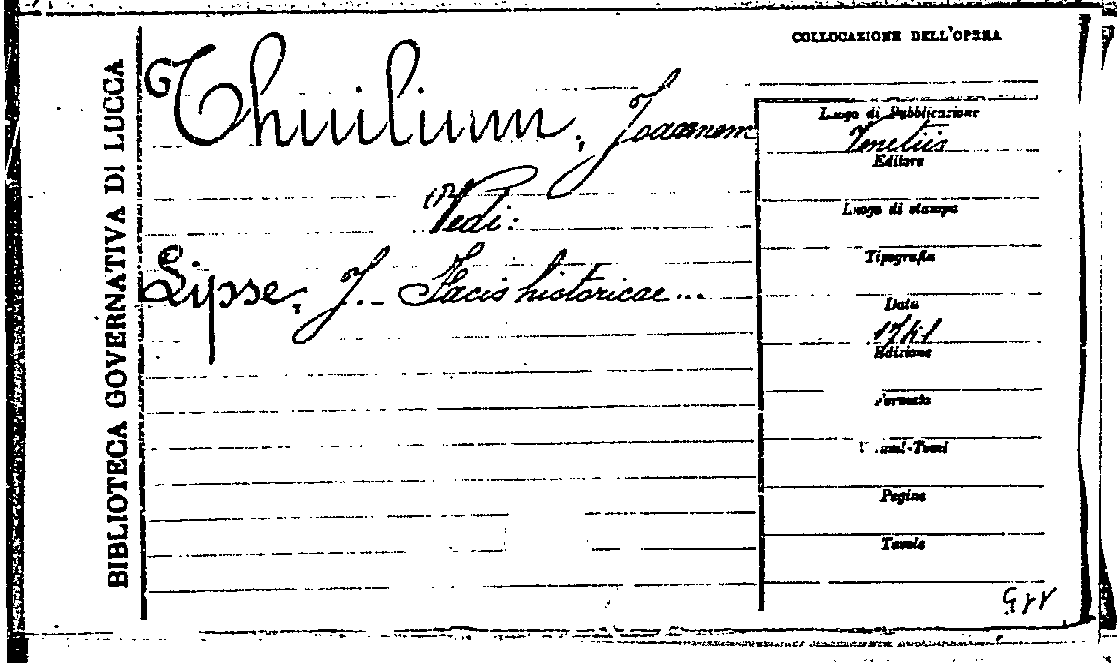 BIBLIOTECA GOVERNATIVA DI LUCCA
Thuilium, Joannem
Vedi:
Lipse, J. Facis historicae...
COLLOCAZIONE DELL'OPERA
Luogo di Pubblicazione
Venetiis
Editore
Luogo di stampa
Tipografia
Data
Edizione
Formato
Pagine
Tavole